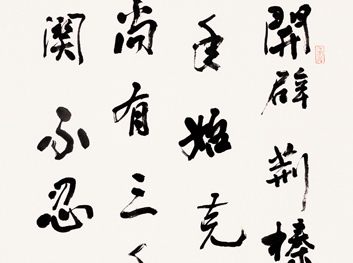 開辟荊榛
年始克
尚有三
關不忍